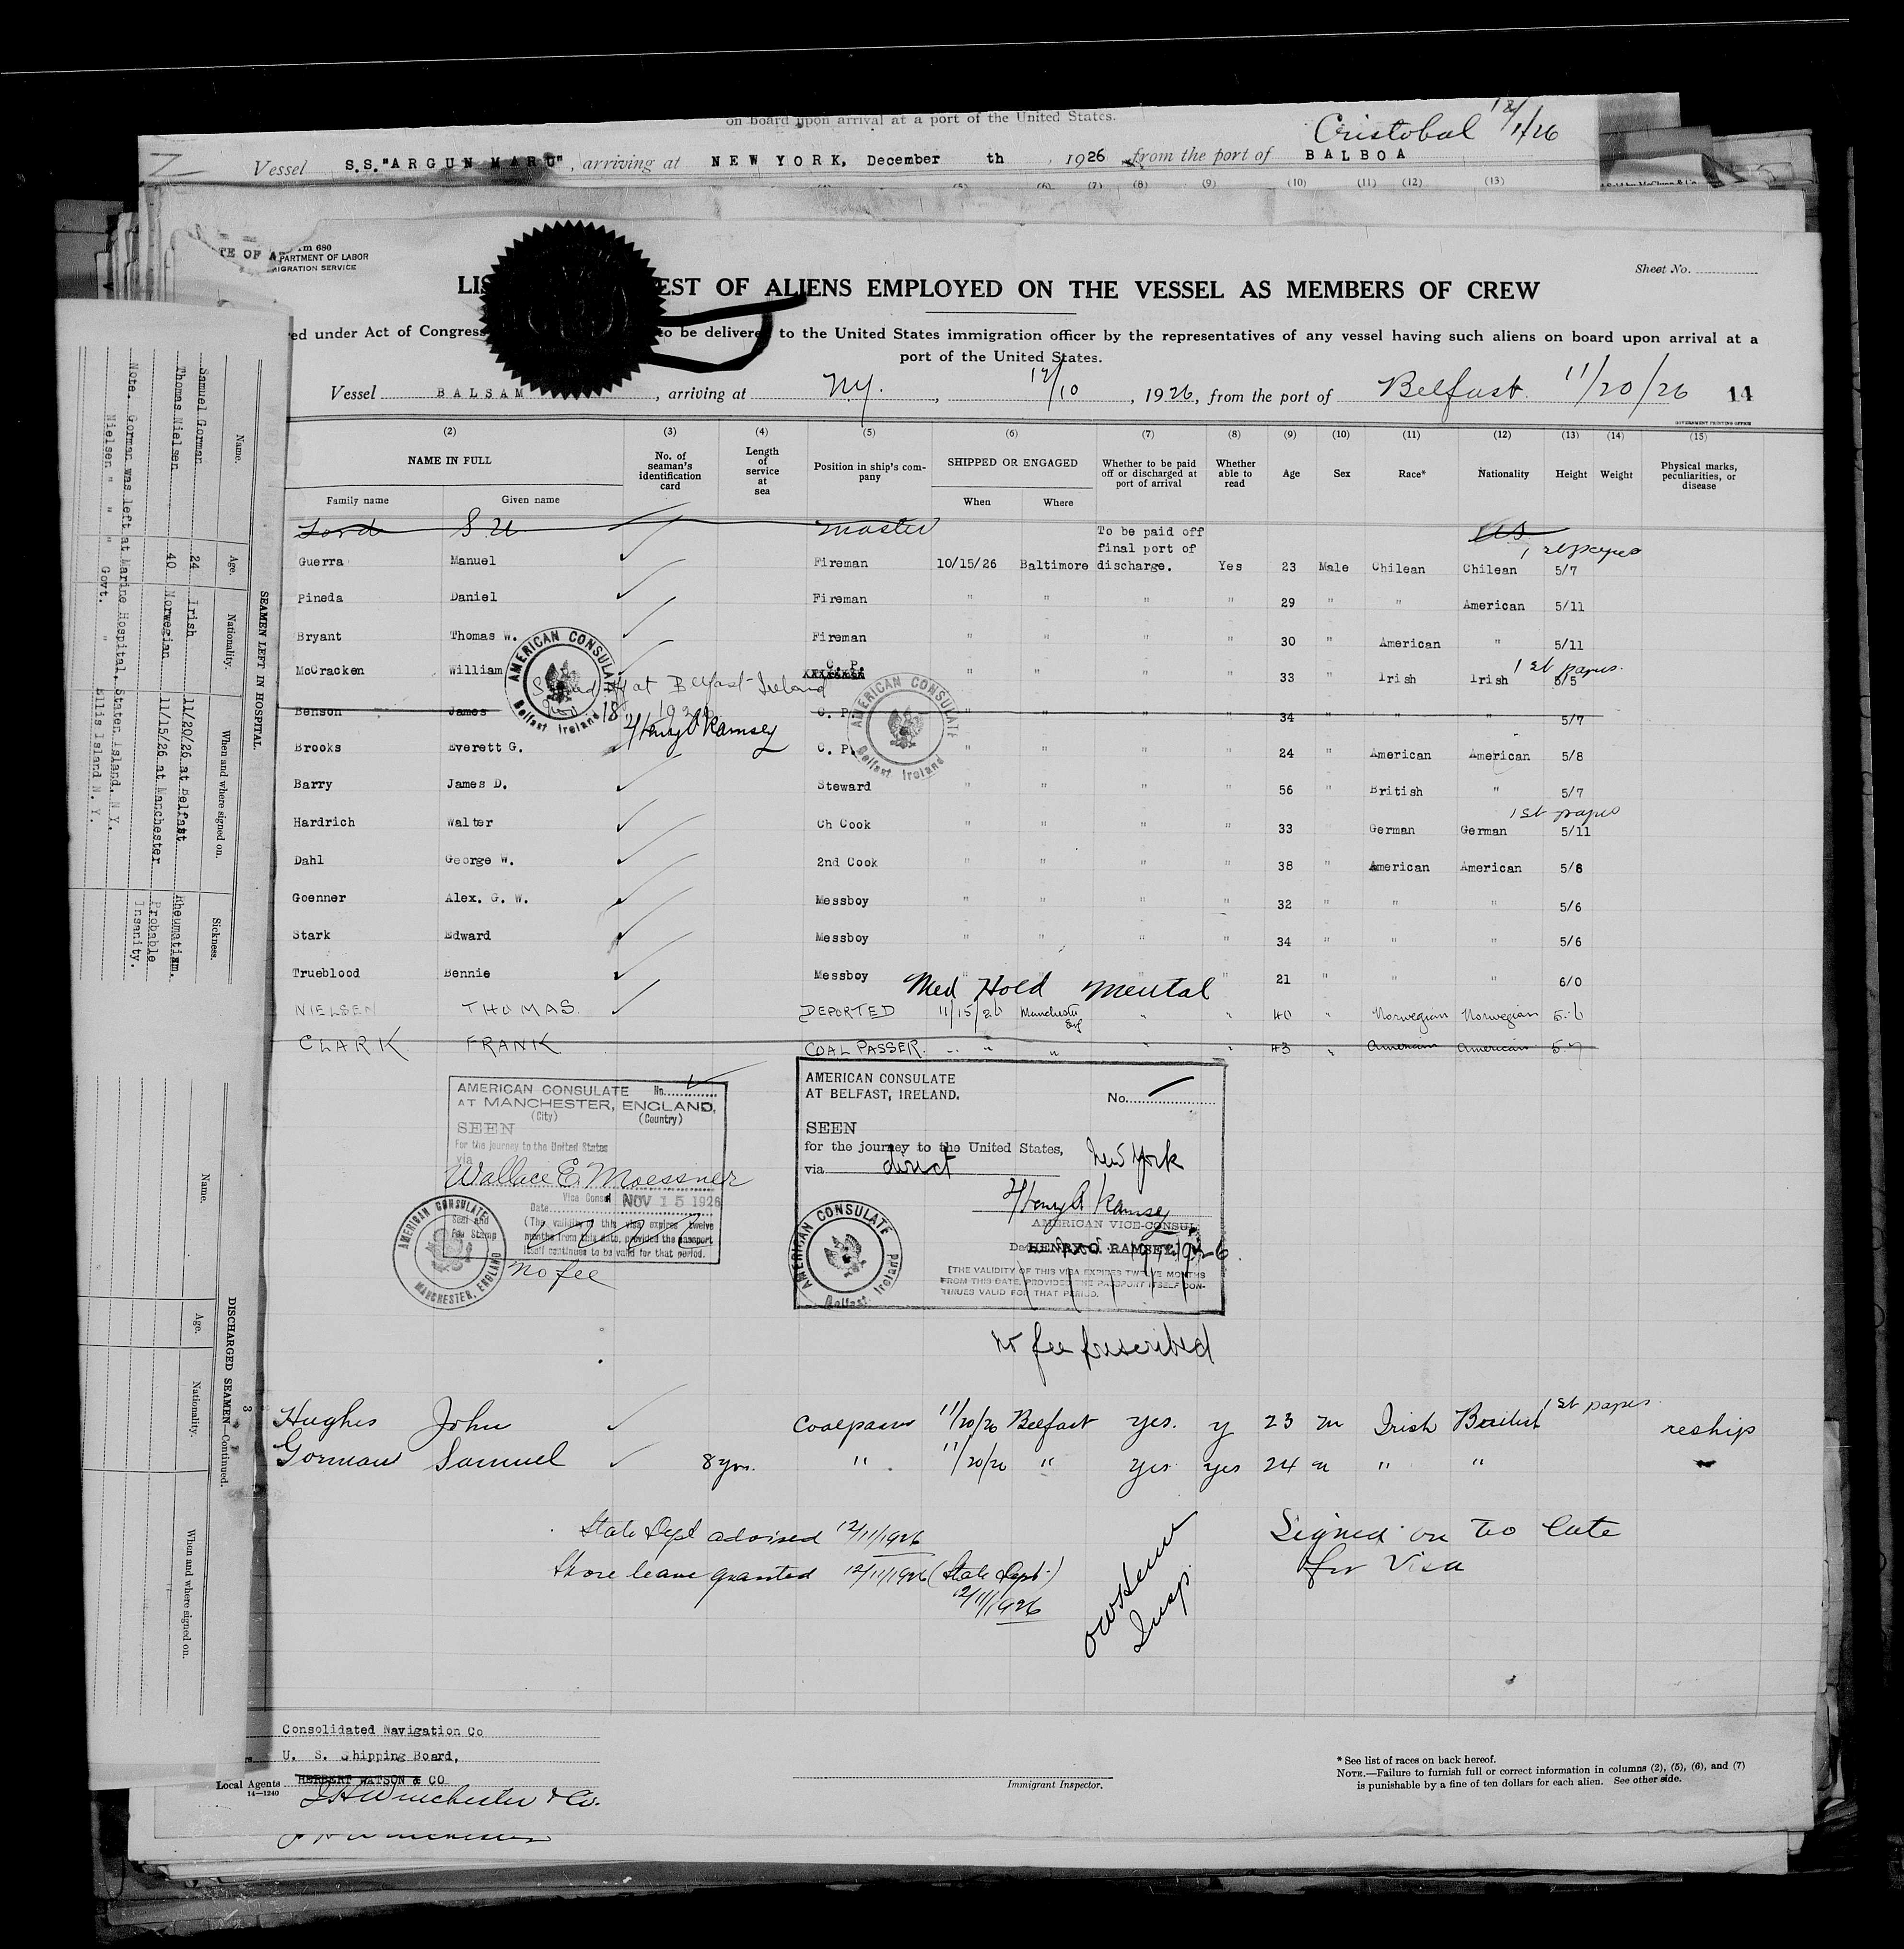 on board upon arrival at a port of the United States.
Cristobal 12/1/26
Vessel S.S."ARGUN MARU", arriving at NEW YORK, December th, 1926, from the port of BALBOA
(10) (11) (12) (13)
TE OF A
rm 680
PARTMENT OF LABOR
MIGRATION SERVICE
Sheet No.
LIS EST OF ALIENS EMPLOYED ON THE VESSEL AS MEMBERS OF CREW
ed under Act of Congress to be delivered to the United States immigration officer by the representatives of any vessel having such aliens on board upon arrival at a
port of the United States.
Vessel BALSAM, arriving at N.Y., 12/10, 1926, from the port of Belfast 11/20/26 14
GOVERNMENT PRINTING OFFICE
(2) (3) (4) (5) (6) (7) (8) (9) (10) (11) (12) (13) (14) (15)
NAME IN FULL
Family name Given name
No. of seaman's identification card
Length of service at sea
Position in ship's company
SHIPPED OR ENGAGED
When Where
Whether to be paid off or discharged at port of arrival
Whether able to read
Age Sex Race* Nationality Height Weight
Physical marks, peculiarities, or disease
Lord S U master US
To be paid off
final port of
1st papers
Guerra Manuel Fireman 10/15/26 Baltimore discharge. Yes 23 Male Chilean Chilean 5/7
Pineda Daniel Fireman " " " " 29 " " American 5/11
Bryant Thomas W. Fireman " " " " 30 " American " 5/11
1st papers.
McCracken William C. P. " " " " 33 " Irish Irish 5/5
Signed off at Belfast Ireland
18, 1926
Benson James C. P. " " " " 34 " " " 5/7
Henry O Ramsey
AMERICAN CONSULATE Belfast Ireland
AMERICAN CONSULATE Belfast Ireland
Brooks Everett G. C. P. " " " " 24 " American American 5/8
Barry James D. Steward " " " " 56 " British " 5/7
1st papers
Hardrich Walter Ch Cook " " " " 33 " German German 5/11
Dahl George W. 2nd Cook " " " " 38 " American American 5/8
Goenner Alex. G. W. Messboy " " " " 32 " " " 5/6
Stark Edward Messboy " " " " 34 " " " 5/6
Trueblood Bennie Messboy " " " " 21 " " " 6/0
Med Hold Mental
NIELSEN THOMAS. DEPORTED 11/15/26 Manchester Eng " " 40 " Norwegian Norwegian 5-6
CLARK FRANK COAL PASSER. " " " " " 43 " American American 5-7
AMERICAN CONSULATE No.
AT MANCHESTER, ENGLAND,
(City) (Country)
SEEN
For the journey to the United States
via
Wallace E. Moessner
Vice Consul
Date NOV 15 1926
Seal and
Fee Stamp
(The validity of this visa expires twelve
months from this date, provided the passport
itself continues to be valid for that period.
AMERICAN CONSULATE MANCHESTER, ENGLAND
No fee
AMERICAN CONSULATE
AT BELFAST, IRELAND. No.
SEEN
for the journey to the United States, New York
via direct
Henry O Ramsey
AMERICAN VICE-CONSUL
HENRY O. RAMSEY
(THE VALIDITY OF THIS VISA EXPIRES TWELVE MONTHS
FROM THIS DATE, PROVIDED THE PASSPORT ITSELF CON-
TINUES VALID FOR THAT PERIOD.
AMERICAN CONSULATE Belfast Ireland
No fee prescribed
Hughes John Coalpasser 11/20/26 Belfast yes. y 23 m Irish British 1st papers. reship
Gorman Samuel 8 yrs. " 11/20/26 " yes yes 24 m " "
State Dept advised 12/11/1926
Shore leave granted 12/11/1926 (State Dept.)
12/11/1926
Insp.
Signed on too late
for Visa
Consolidated Navigation Co
U. S. Shipping Board,
Local Agents HERBERT WATSON & CO
14—1240
J H Winchester & Co.
Immigrant Inspector.
* See list of races on back hereof.
NOTE.—Failure to furnish full or correct information in columns (2), (5), (6), and (7)
is punishable by a fine of ten dollars for each alien. See other side.
SEAMEN LEFT IN HOSPITAL
Name. Age. Nationality. When and where signed on. Sickness.
Samuel Gorman 24 Irish 11/20/26 at Belfast Rheumatism.
Thomas Nielsen 40 Norwegian 11/15/26 at Manchester Probable
Insanity.
Note. Gorman was left at Marine Hospital, Staten Island, N.Y.
Nielsen " " " Govt. " Ellis Island N.Y.
3
DISCHARGED SEAMEN—Continued.
Name. Age. Nationality. When and where signed on.